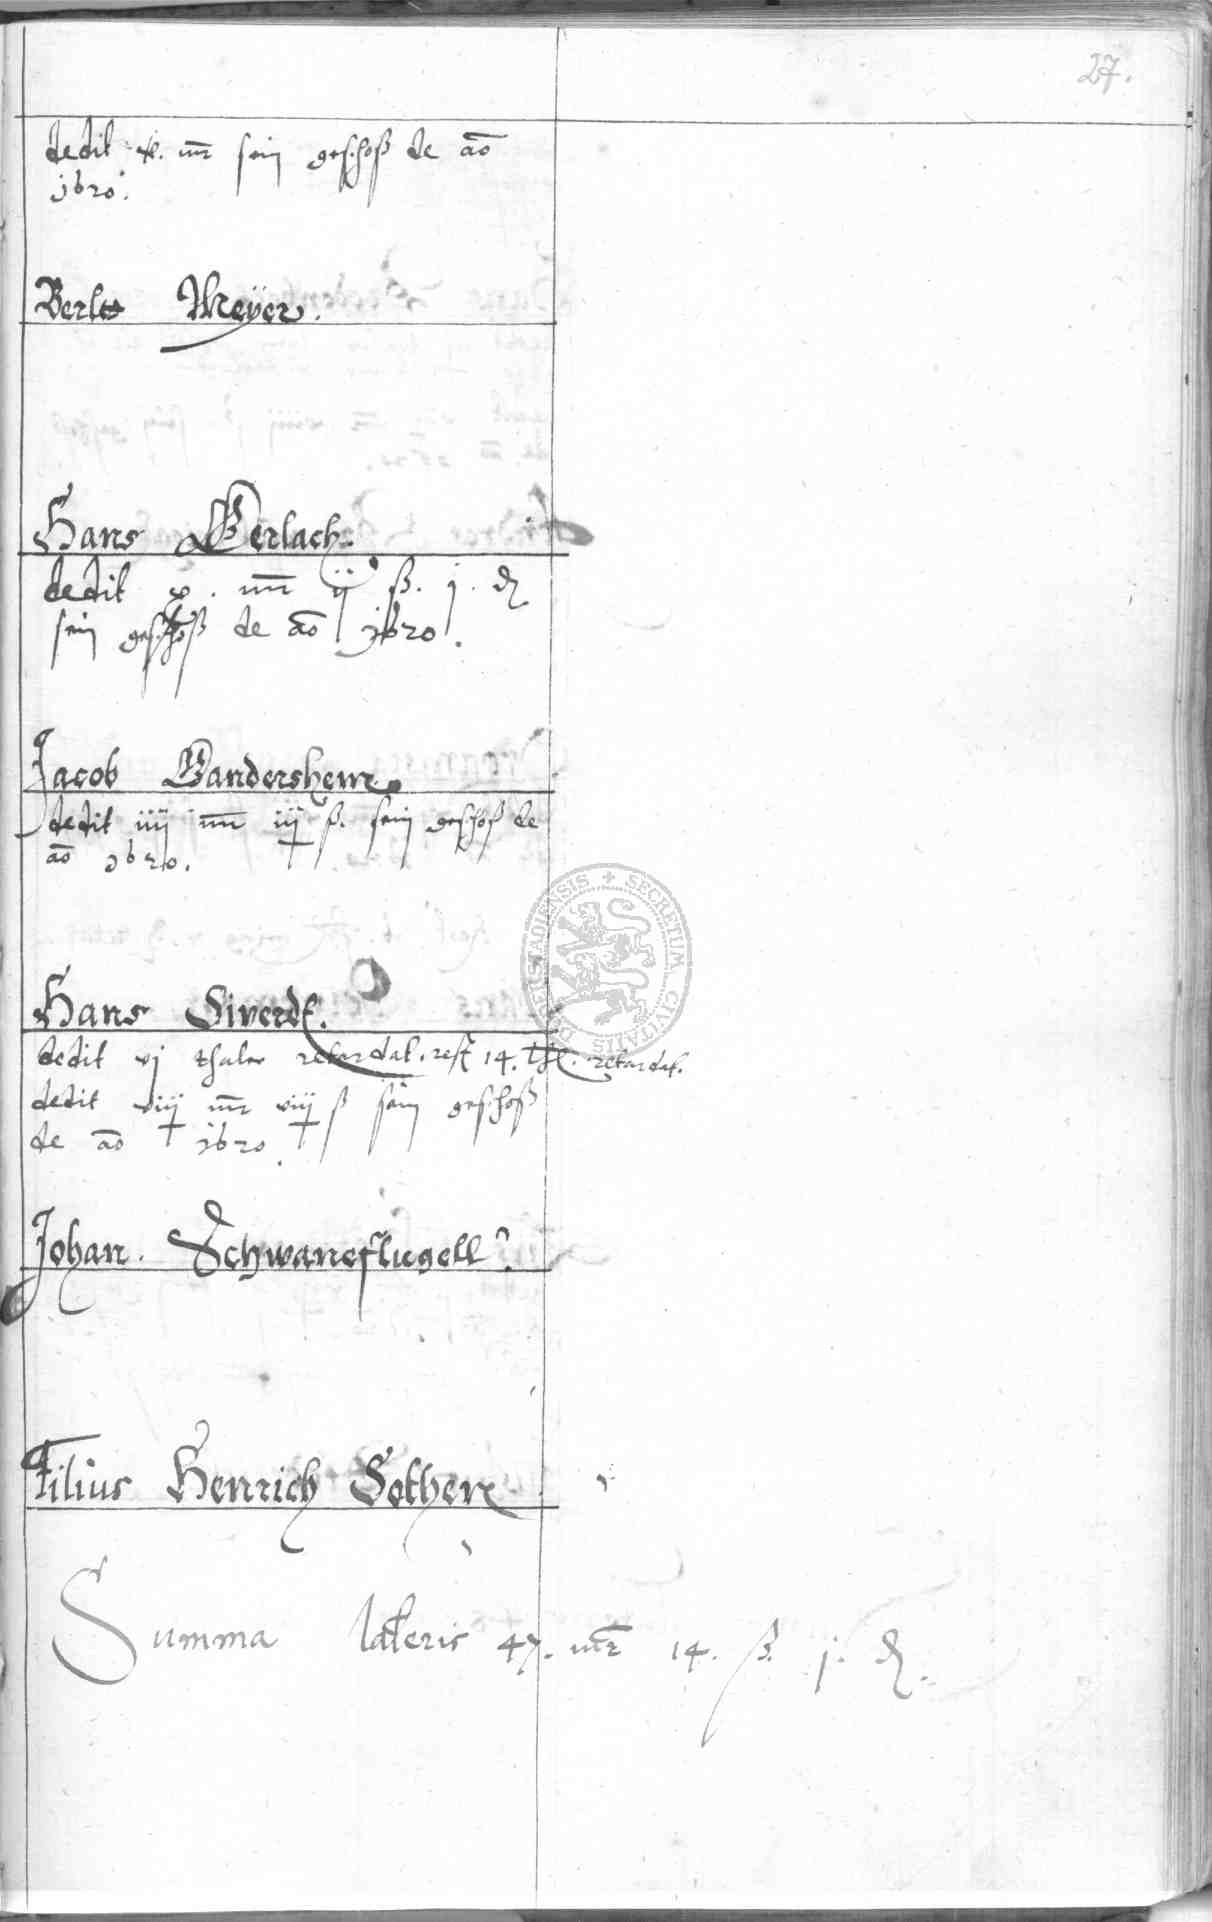 27.
dedit x. mr sein geschoß de ao
1620.
Berlt Meÿer.
Hans Gerlach
dedit x. mr ij ß. j. ₰
sein geschoß de ao 1620.
Jacob Gandershem
dedit iiij mr iij ß. sein geschoß de
ao 1620.
Hans Siverdt.
dedit vj thaler retardat. rest 14. thl. retardat.
dedit viij mr viij ß sein geschoß
de ao 1620.
Johan. Schwaneflugell.
Filius Henrich Sothen
Summa lateris 47. mr 14. ß. j. ₰.
SECRETUM CIVITATIS DUDERSTADIENSIS